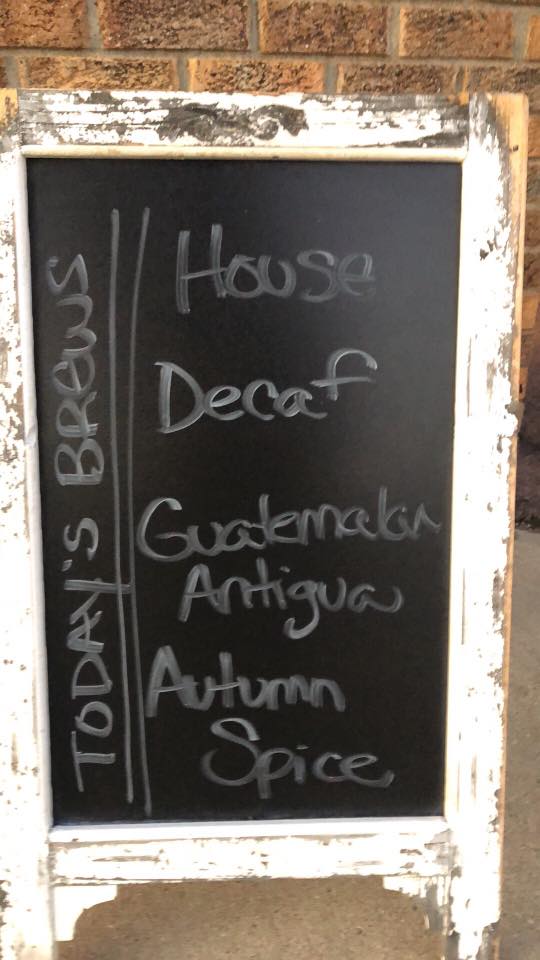 TODAY'S BREWS
House
Decaf
Guatemalan
Antigua
Autumn
Spice